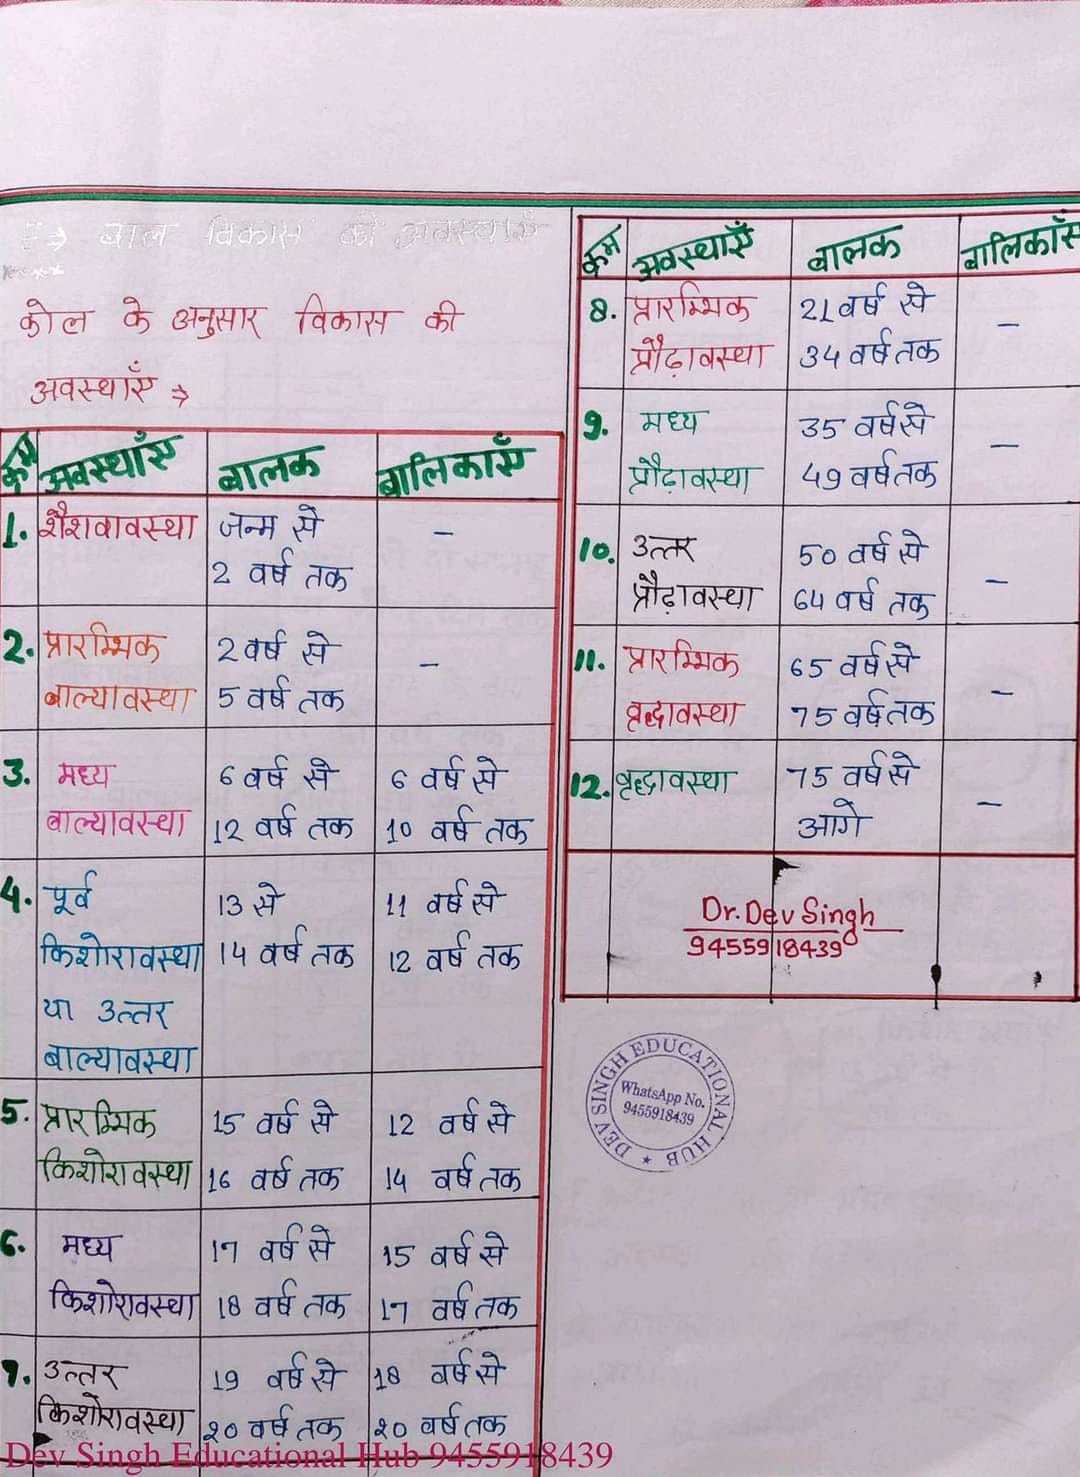 ⇒ बाल विकास की अवस्थाएँ
कोल के अनुसार विकास की
अवस्थाएँ ⇒
क्रम अवस्थाएँ बालक बालिकाएँ
1. शैशवावस्था जन्म से -
2 वर्ष तक
2. प्रारम्भिक 2 वर्ष से -
बाल्यावस्था 5 वर्ष तक
3. मध्य 6 वर्ष से 6 वर्ष से
बाल्यावस्था 12 वर्ष तक 10 वर्ष तक
4. पूर्व 13 से 11 वर्ष से
किशोरावस्था 14 वर्ष तक 12 वर्ष तक
या उत्तर
बाल्यावस्था
5. प्रारम्भिक 15 वर्ष से 12 वर्ष से
किशोरावस्था 16 वर्ष तक 14 वर्ष तक
6. मध्य 17 वर्ष से 15 वर्ष से
किशोरावस्था 18 वर्ष तक 17 वर्ष तक
7. उत्तर 19 वर्ष से 18 वर्ष से
किशोरावस्था 20 वर्ष तक 20 वर्ष तक
क्रम अवस्थाएँ बालक बालिकाएँ
8. प्रारम्भिक 21 वर्ष से -
प्रौढ़ावस्था 34 वर्ष तक
9. मध्य 35 वर्ष से -
प्रौढ़ावस्था 49 वर्ष तक
10. उत्तर 50 वर्ष से -
प्रौढ़ावस्था 64 वर्ष तक
11. प्रारम्भिक 65 वर्ष से -
वृद्धावस्था 75 वर्ष तक
12. वृद्धावस्था 75 वर्ष से -
आगे
Dr. Dev Singh
9455918439
DEV SINGH EDUCATIONAL HUB
WhatsApp No.
9455918439
Dev Singh Educational Hub 9455918439